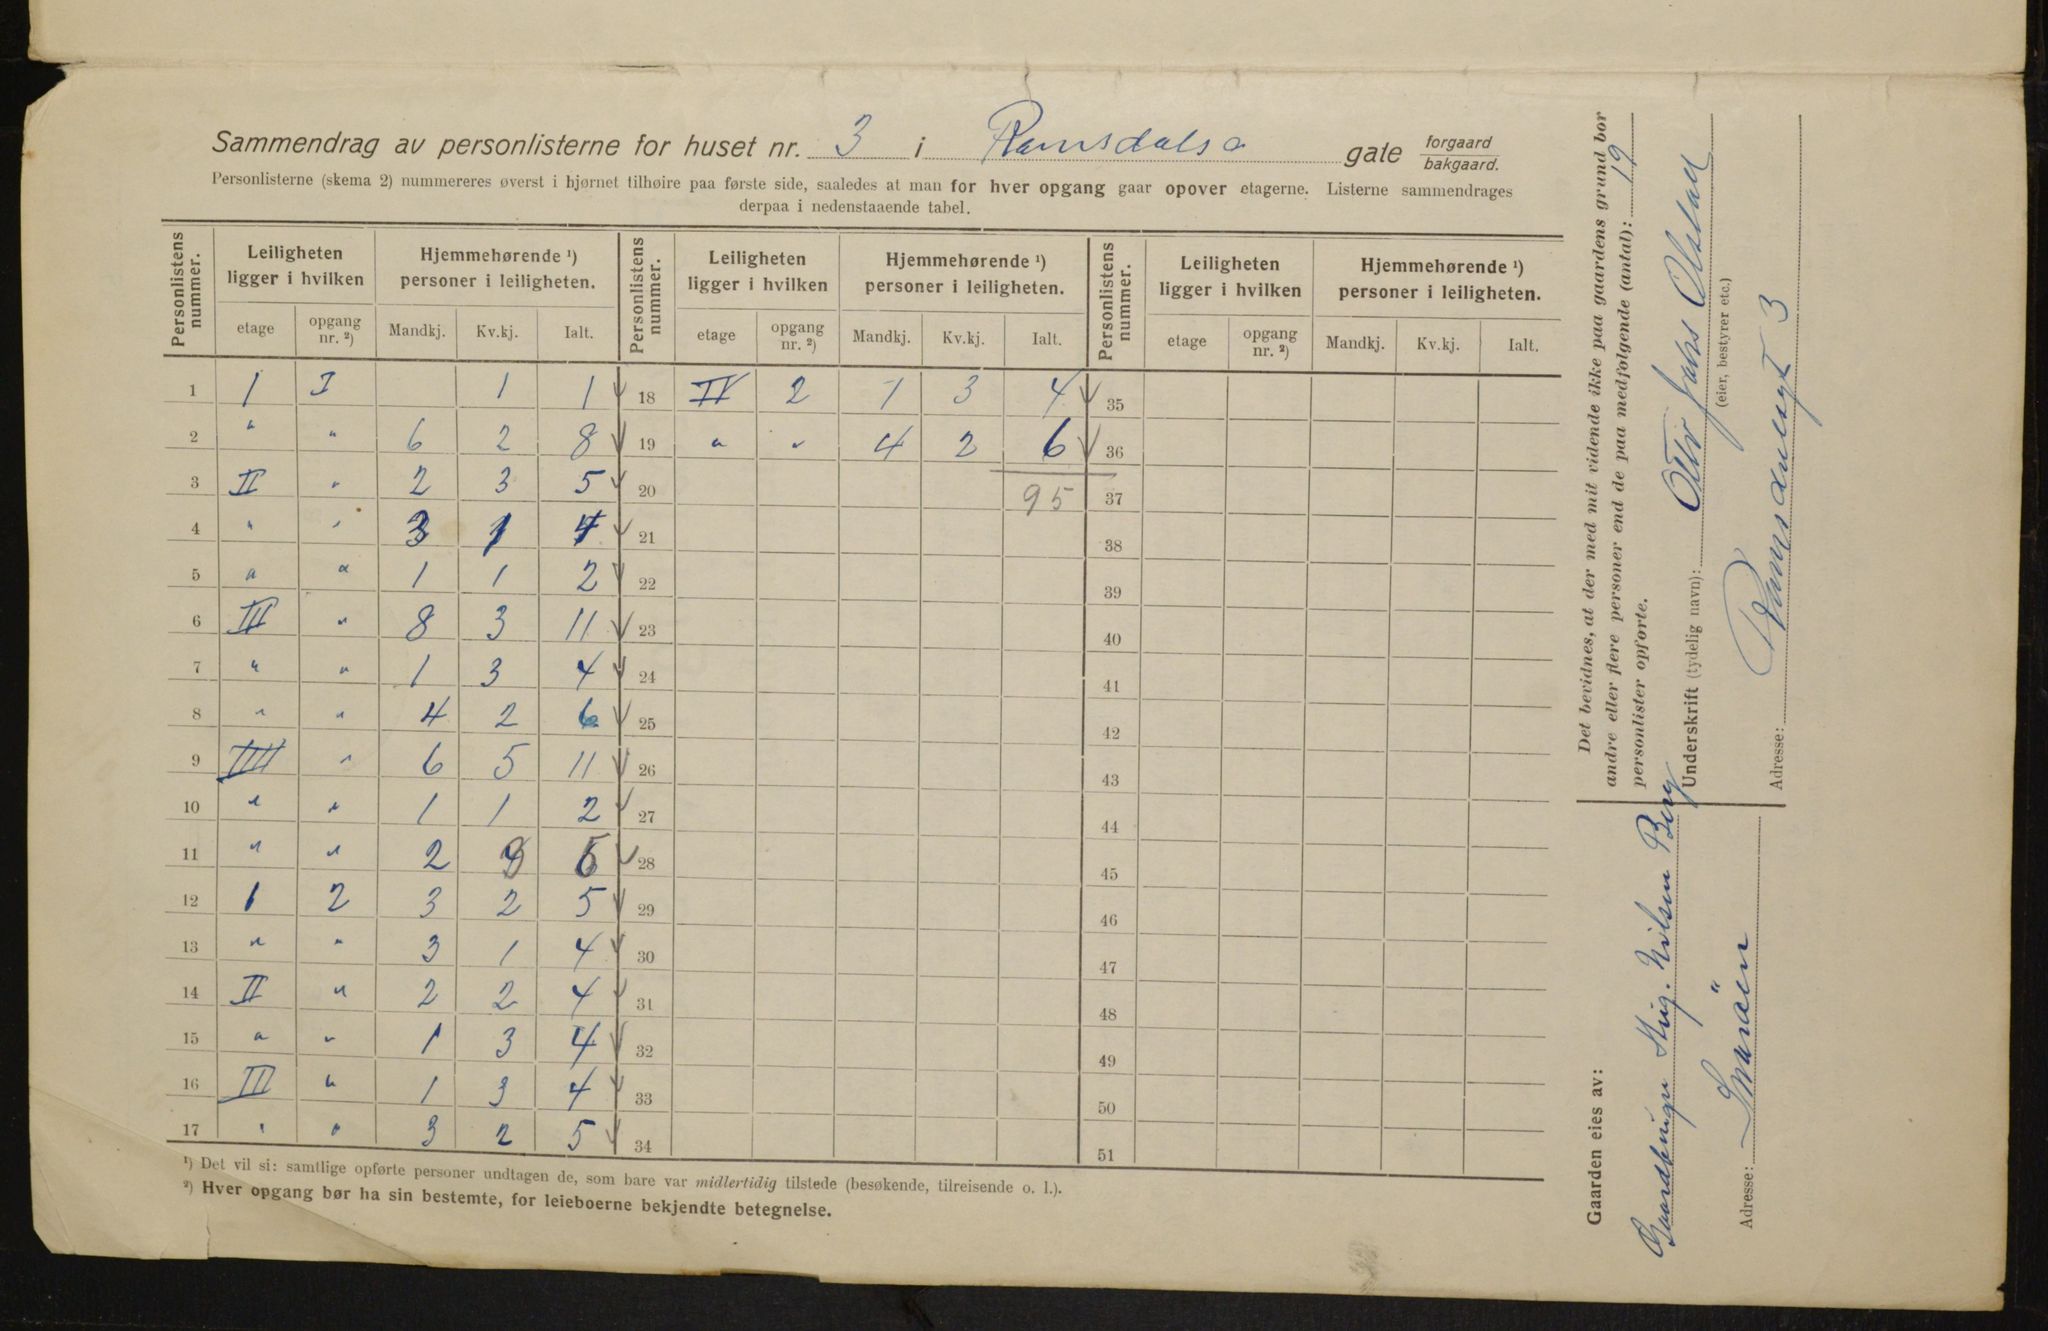 Sammendrag av personlisterne for huset nr. 3 i Ramsdalsa gate forgaard bakgaard.
Personlisterne (skema 2) nummereres øverst i hjørnet tilhøire paa første side, saaledes at man for hver opgang gaar opover etagerne. Listerne sammendrages
derpaa i nedenstaaende tabel.
Personlistens nummer. Leiligheten ligger i hvilken Hjemmehørende ¹) personer i leiligheten. Personlistens nummer. Leiligheten ligger i hvilken Hjemmehørende ¹) personer i leiligheten. Personlistens nummer. Leiligheten ligger i hvilken Hjemmehørende ¹) personer i leiligheten.
etage opgang nr. ²) Mandkj. Kv.kj. Ialt. etage opgang nr. ²) Mandkj. Kv.kj. Ialt. etage opgang nr. ²) Mandkj. Kv.kj. Ialt.
1 1 I 1 1 18 IV 2 1 3 4 35
2 " " 6 2 8 19 " " 4 2 6 36
3 II " 2 3 5 20 95 37
4 " " 3 1 4 21 38
5 " " 1 1 2 22 39
6 III " 8 3 11 23 40
7 " " 1 3 4 24 41
8 " " 4 2 6 25 42
9 IIII " 6 5 11 26 43
10 " " 1 1 2 27 44
11 " " 2 3 5 28 45
12 1 2 3 2 5 29 46
13 " " 3 1 4 30 47
14 II " 2 2 4 31 48
15 " " 1 3 4 32 49
16 III " 1 3 4 33 50
17 " " 3 2 5 34 51
¹) Det vil si: samtlige opførte personer undtagen de, som bare var midlertidig tilstede (besøkende, tilreisende o. l.).
²) Hver opgang bør ha sin bestemte, for leieboerne bekjendte betegnelse.
Det bevidnes, at der med mit vidende ikke paa gaardens grund bor
andre eller flere personer end de paa medfølgende (antal): 19
personlister opførte.
Underskrift (tydelig navn): Otto Jahrs Olstad
(eier, bestyrer etc.)
Adresse: Ramsdalsgt 3
Gaarden eies av:
Gaardbruger Nilsen Berg
Adresse: